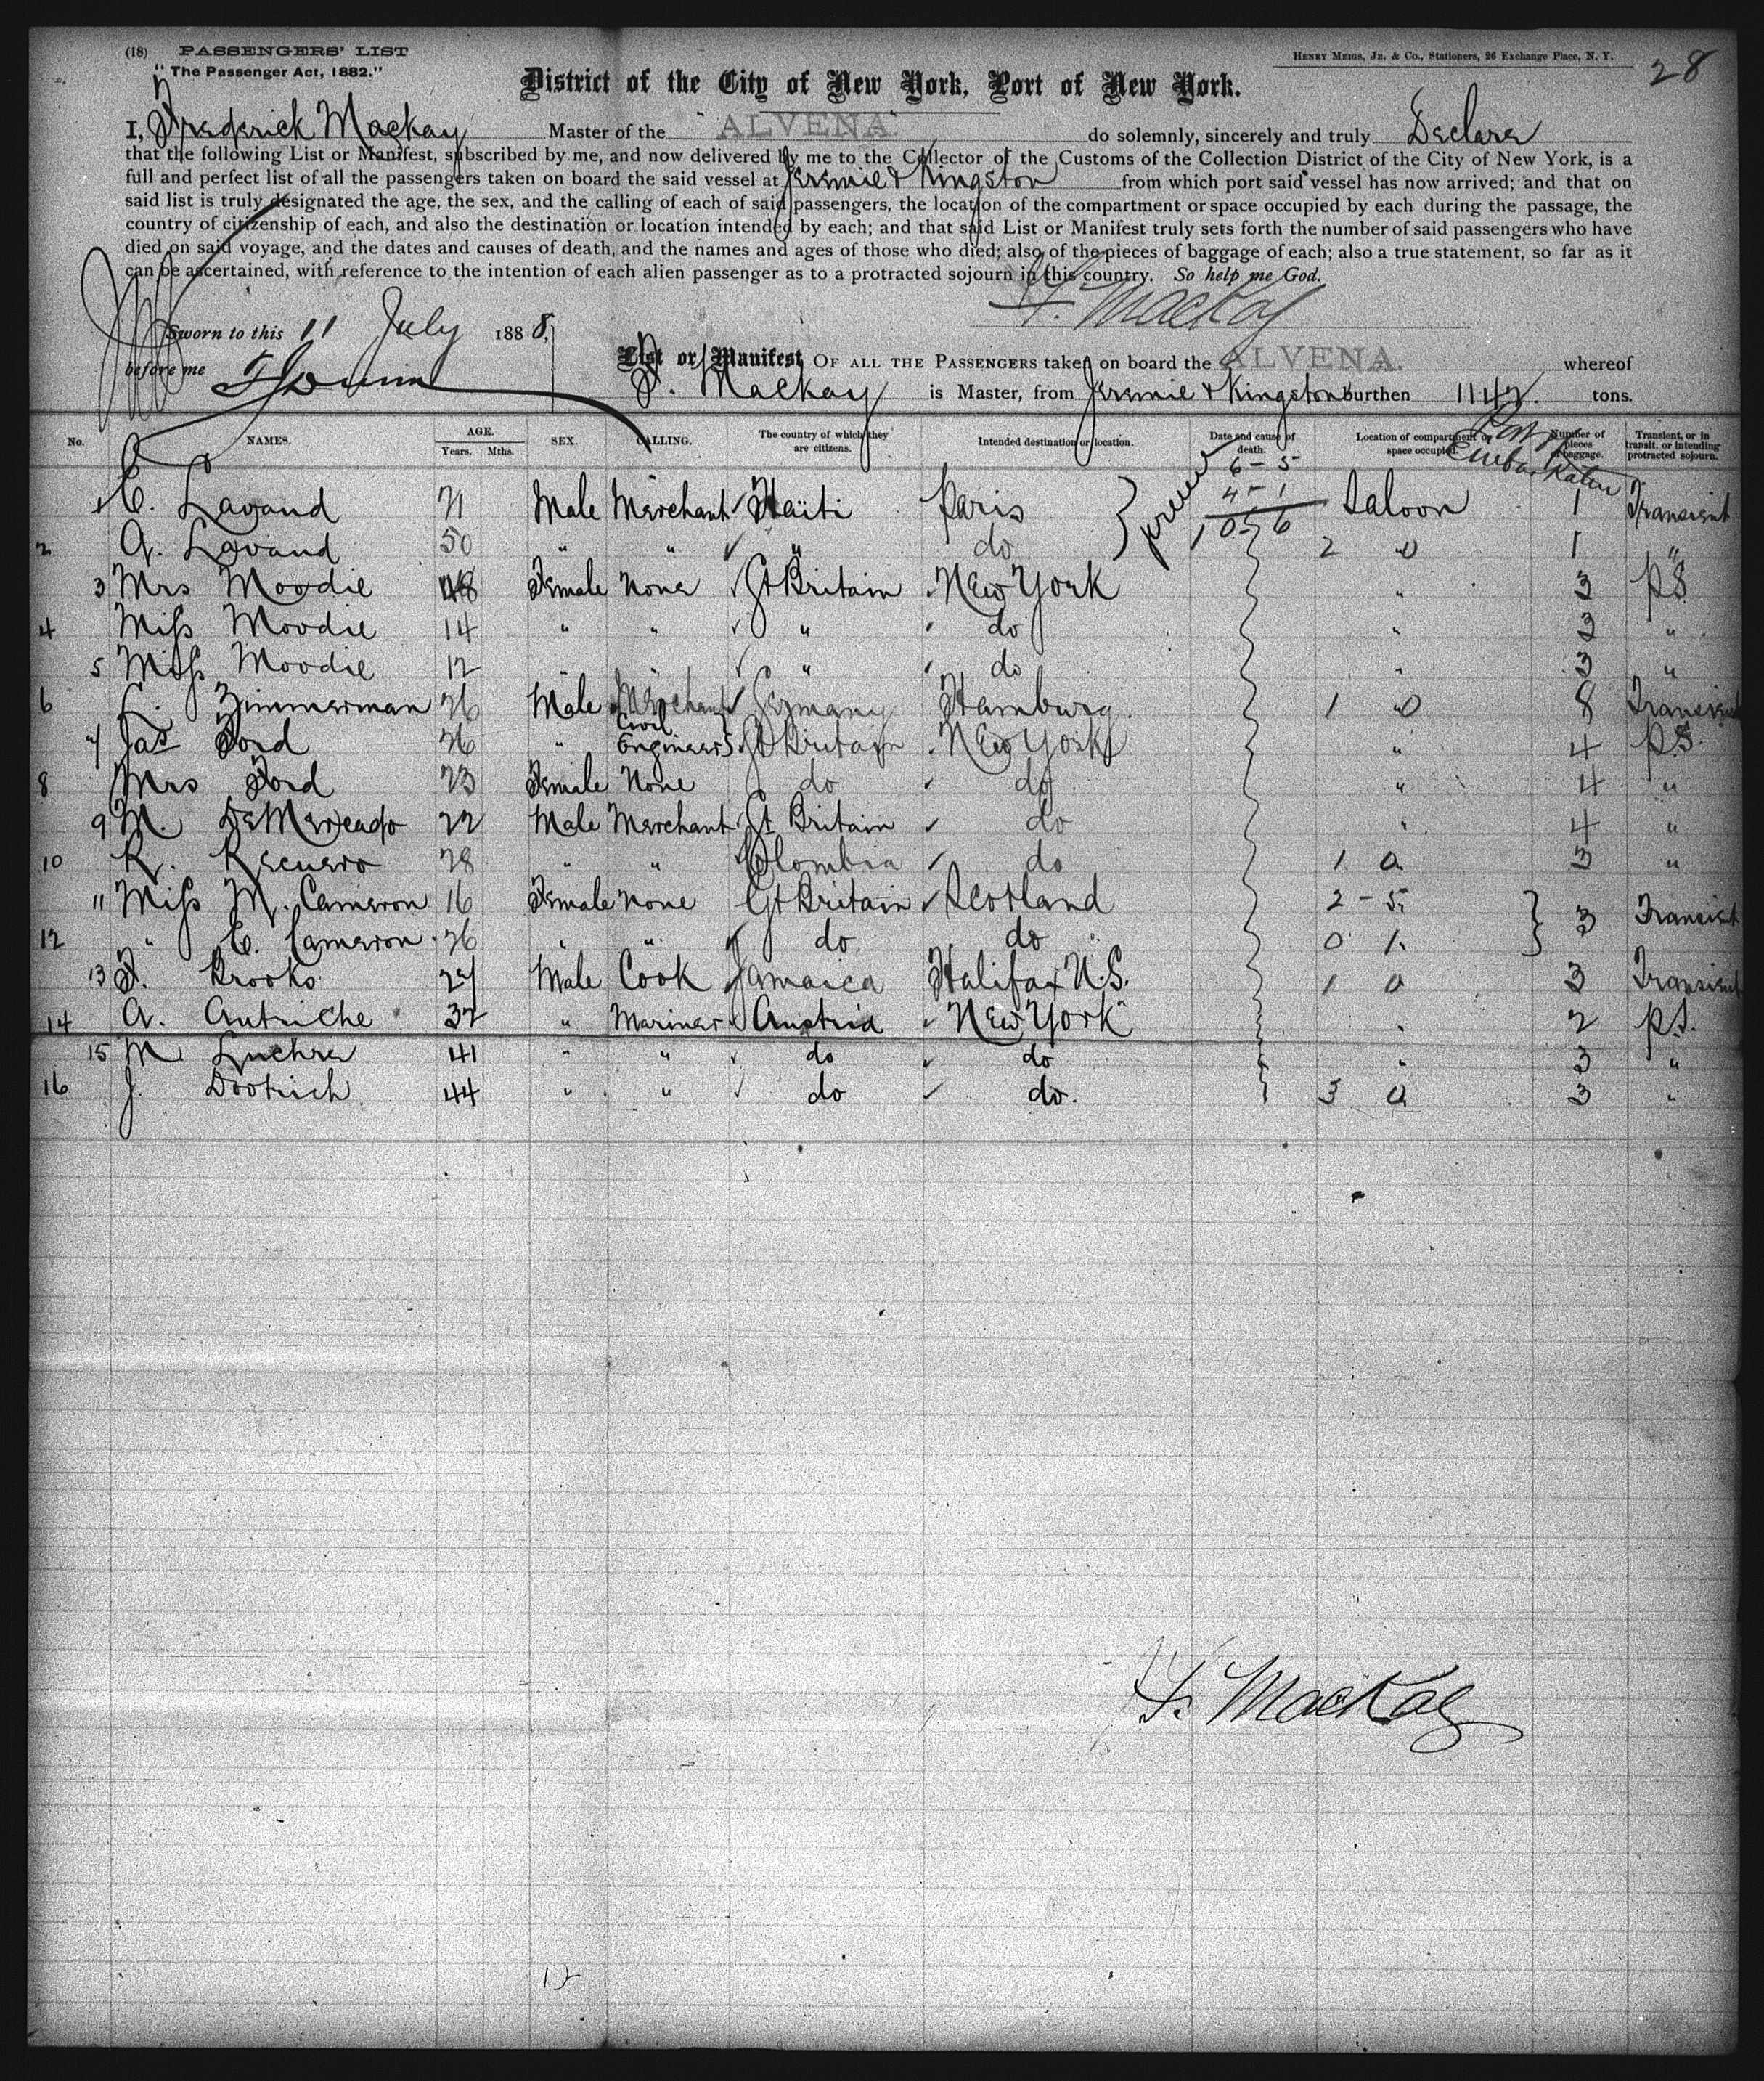 (18) PASSENGERS' LIST
"The Passenger Act, 1882."
HENRY MEIGS, JR. & CO., Stationers, 26 Exchange Place, N. Y.
28
District of the City of New York, Port of New York.
I, Frederick Mackay Master of the "ALVENA" do solemnly, sincerely and truly Declare
that the following List or Manifest, subscribed by me, and now delivered by me to the Collector of the Customs of the Collection District of the City of New York, is a
full and perfect list of all the passengers taken on board the said vessel at Jeremie & Kingston from which port said vessel has now arrived; and that on
said list is truly designated the age, the sex, and the calling of each of said passengers, the location of the compartment or space occupied by each during the passage, the
country of citizenship of each, and also the destination or location intended by each; and that said List or Manifest truly sets forth the number of said passengers who have
died on said voyage, and the dates and causes of death, and the names and ages of those who died; also of the pieces of baggage of each; also a true statement, so far as it
can be ascertained, with reference to the intention of each alien passenger as to a protracted sojourn in this country. So help me God.
F. Mackay
Sworn to this 11 July 1888,
before me
List or Manifest OF ALL THE PASSENGERS taken on board the ALVENA. whereof
F. Mackay is Master, from Jeremie & Kingston burthen 1142 tons.
No. NAMES. AGE. Years. Mths. SEX. CALLING. The country of which they are citizens. Intended destination or location. Date and cause of death. Location of compartment or space occupied. Number of pieces of baggage. Transient, or in transit, or intending protracted sojourn.
Port of Embarkation
6 - 5
4 - 1
10 5 6
1 C. Lavaud 21 Male Merchant Haïti Paris Saloon 1 Transient
2 A. Lavaud 50 " " " do 2 0 1 "
3 Mrs Moodie 48 Female None Gt Britain New York " 3 P.S.
4 Miss Moodie 14 " " " do " 3 "
5 Miss Moodie 12 " " " do " 3 "
6 Zimmerman 26 Male Merchant Germany Hamburg. 1 0 8 Transient
7 Jas Ford 26 " Civil Engineer Gt Britain New York " 4 P.S.
8 Mrs Ford 23 Female None do do " 4 "
9 M. DeMercado 22 Male Merchant Gt Britain do " 4 "
10 R. Recuero 28 " " Colombia do 1 0 3 "
11 Miss M. Cameron 16 Female None Gt Britain Scotland 2 - 5 3 Transient
12 " C. Cameron 26 " " do do 0 1
13 F. Brooks 27 Male Cook Jamaica Halifax N.S. 1 0 3 Transient
14 A. Autriche 32 " Mariner Austria New York " 2 P.S.
15 M. Luchra 41 " " do do " 3 "
16 J. Dootrich 44 " " do do. 3 0 3 "
F. Mackay
12